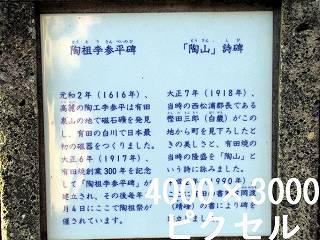 とうそりさんぺいのひ
陶祖李参平碑
元和2年（1616年）、
高麗の陶工李参平は有田
泉山の地で磁石礦を発見
し、有田の白川で日本最
初の磁器をつくりました。
大正6年（1917年）、
有田焼創業300年を記念し
て「陶祖李参平碑」が
建立され、その後毎年
月4日にここで陶祖祭が
催されています。
とうざん しひ
「陶山」詩碑
大正7年（1918年）、
当時の西松浦郡長である
樫田三郎（白巌）がこの
地から町を見下ろしたと
きの美しさと、有田焼の
当時の隆盛を「陶山」と
いう詩に詠みました。
4000×3000
ピクセル